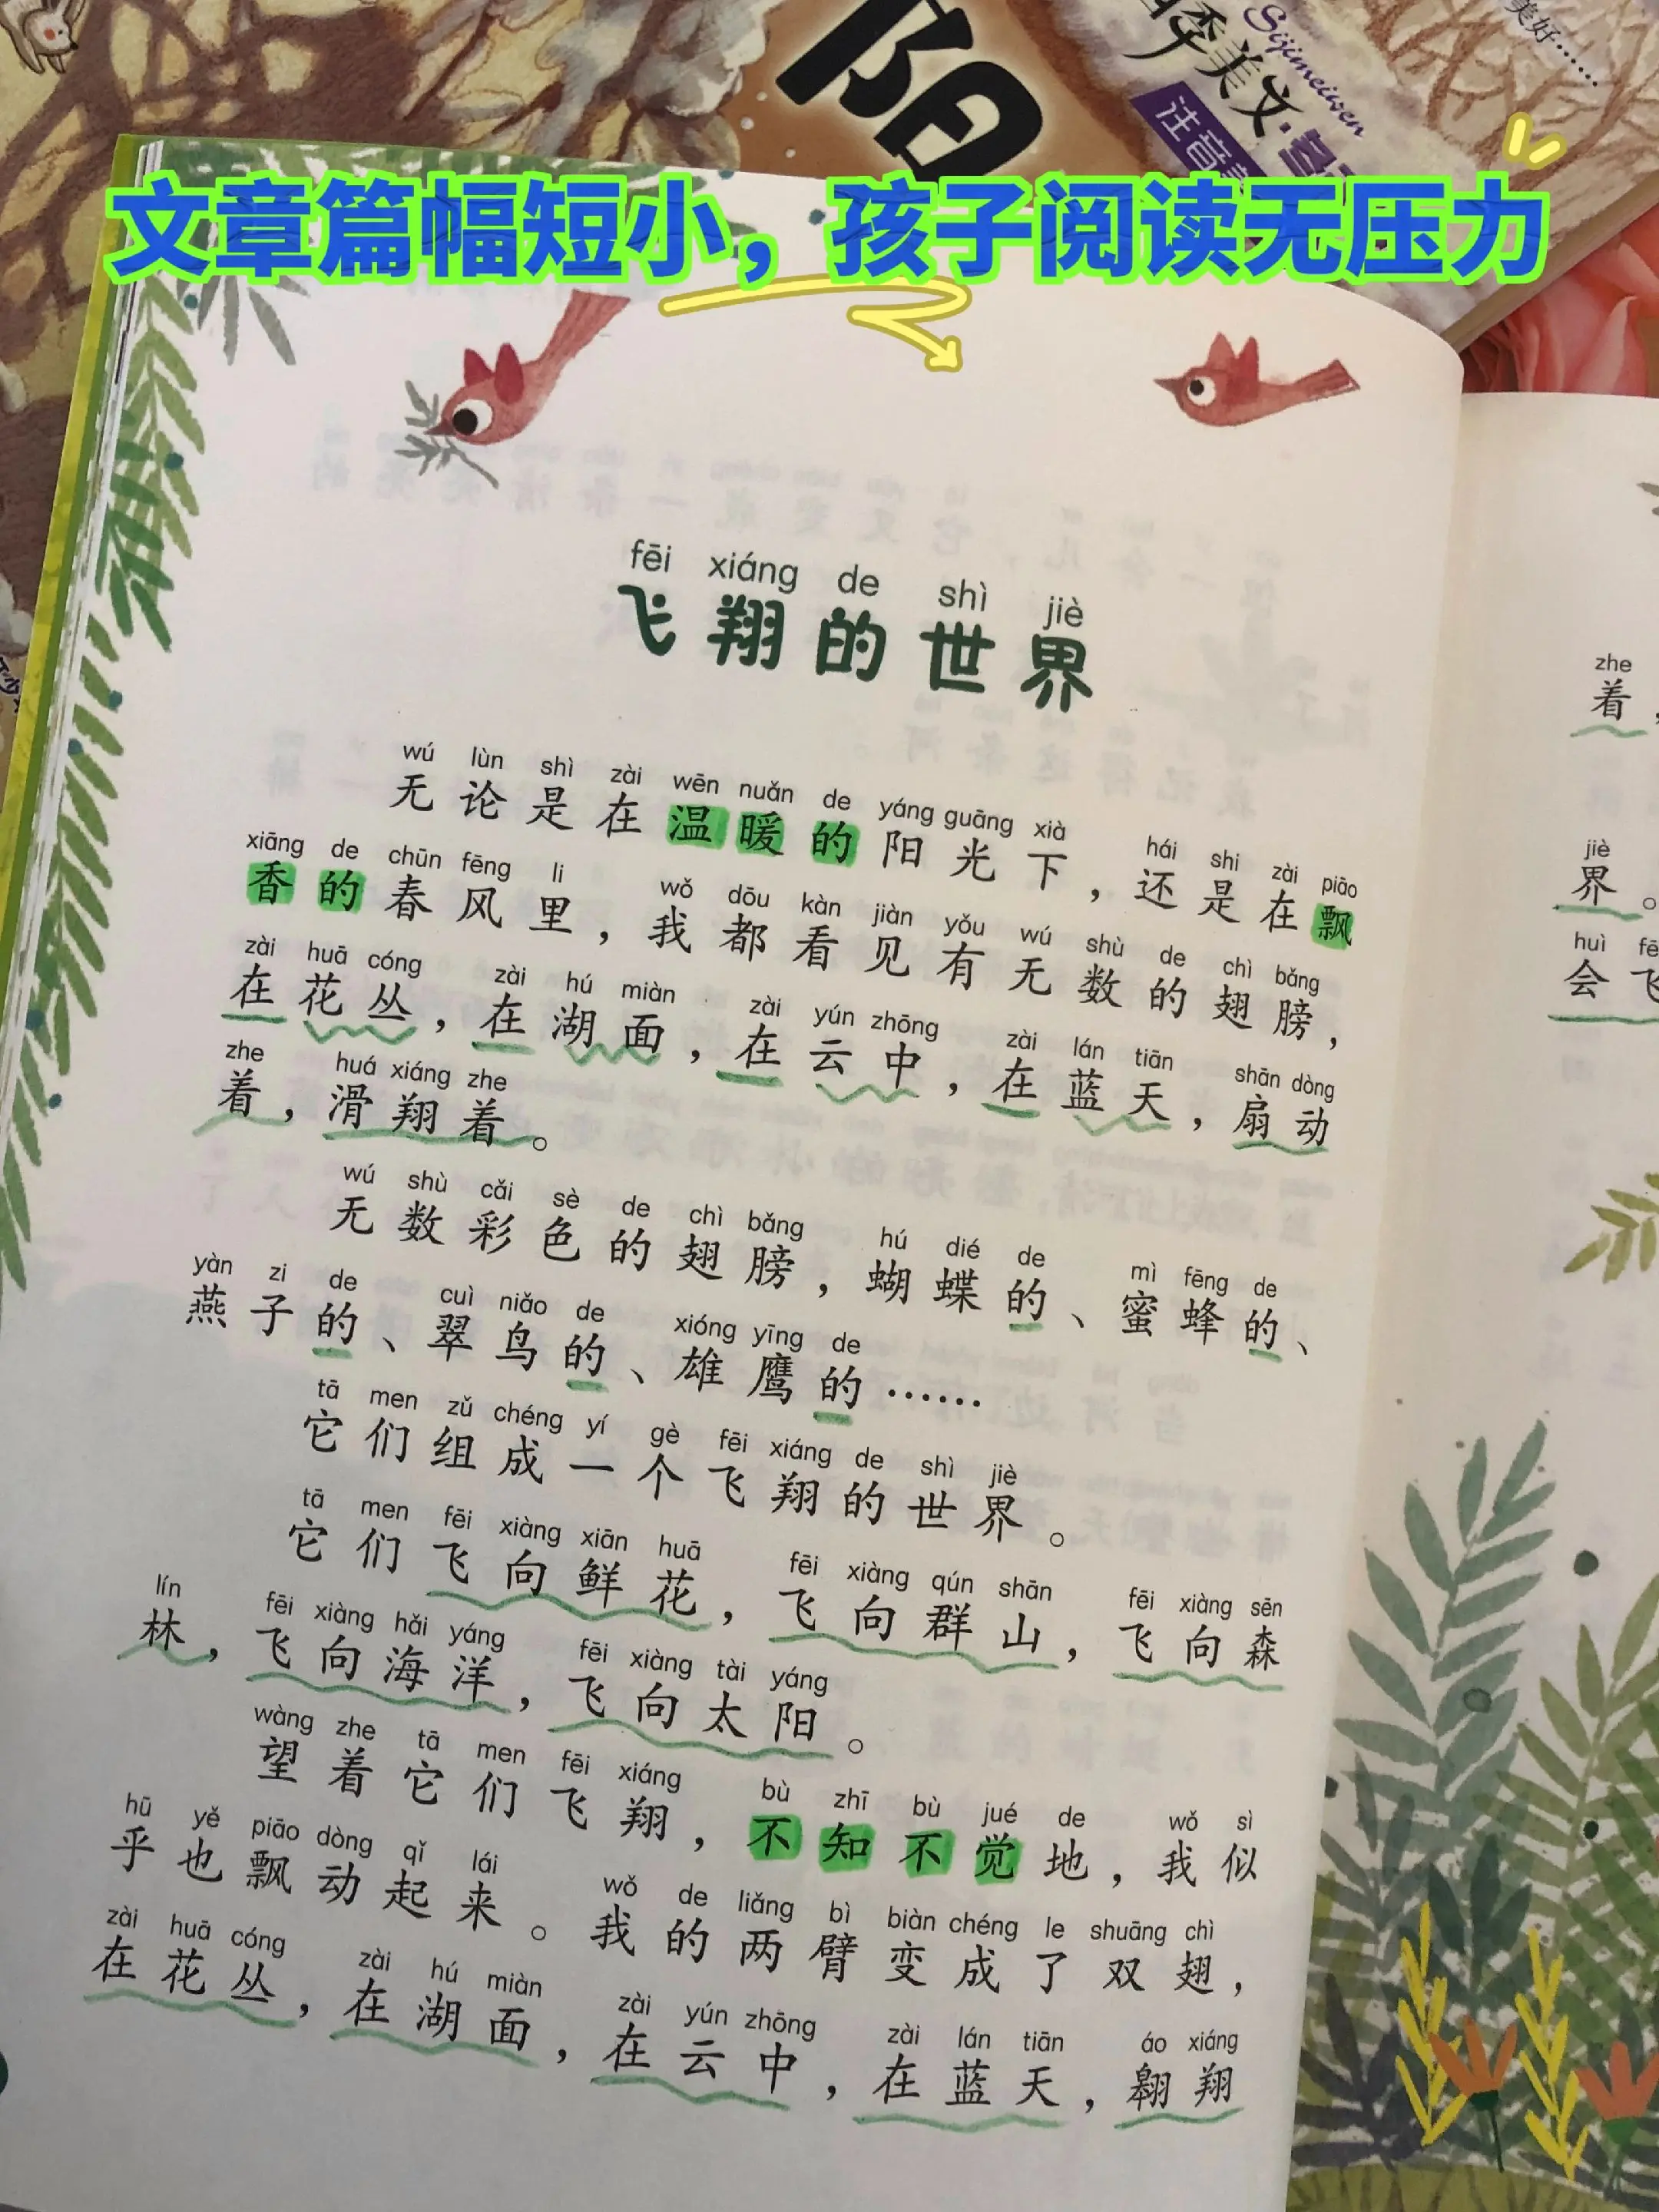 阳
四季美文·
Sijimeiwen
注音
美好……
文章篇幅短小，孩子阅读无压力
fēi xiáng de shì jiè
飞翔的世界
wú lùn shì zài wēn nuǎn de yáng guāng xià hái shi zài piāo
无论是在温暖的阳光下，还是在飘
xiāng de chūn fēng li wǒ dōu kàn jiàn yǒu wú shù de chì bǎng
香的春风里，我都看见有无数的翅膀，
zài huā cóng zài hú miàn zài yún zhōng zài lán tiān shān dòng
在花丛，在湖面，在云中，在蓝天，扇动
zhe huá xiáng zhe
着，滑翔着。
wú shù cǎi sè de chì bǎng hú dié de mì fēng de
无数彩色的翅膀，蝴蝶的、蜜蜂的、
yàn zi de cuì niǎo de xióng yīng de
燕子的、翠鸟的、雄鹰的……
tā men zǔ chéng yí gè fēi xiáng de shì jiè
它们组成一个飞翔的世界。
tā men fēi xiàng xiān huā fēi xiàng qún shān fēi xiàng sēn
它们飞向鲜花，飞向群山，飞向森
lín fēi xiàng hǎi yáng fēi xiàng tài yáng
林，飞向海洋，飞向太阳。
wàng zhe tā men fēi xiáng bù zhī bù jué de wǒ sì
望着它们飞翔，不知不觉地，我似
hū yě piāo dòng qǐ lái wǒ de liǎng bì biàn chéng le shuāng chì
乎也飘动起来。我的两臂变成了双翅，
zài huā cóng zài hú miàn zài yún zhōng zài lán tiān áo xiáng
在花丛，在湖面，在云中，在蓝天，翱翔
zhe
着，
jiè
界。
huì fē
会飞